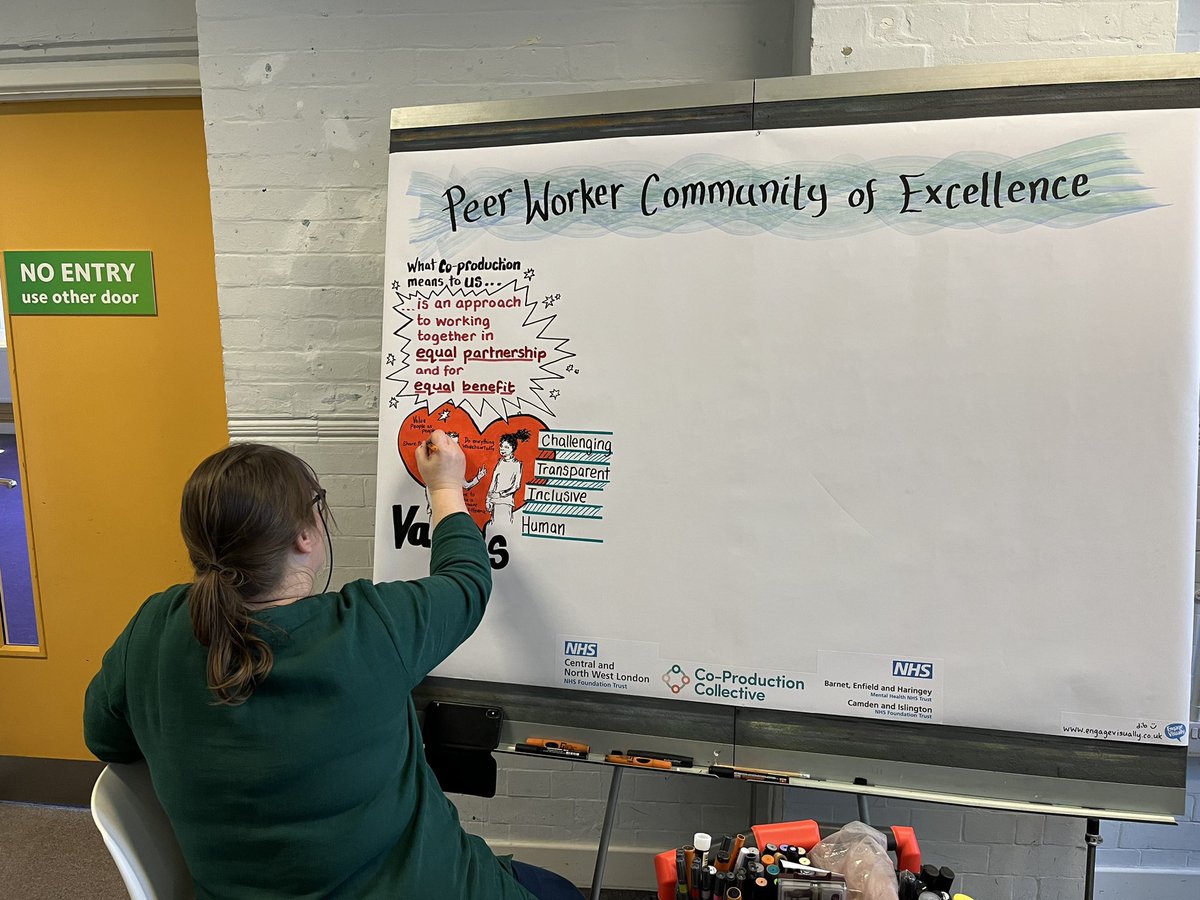 NO ENTRY
use other door
Peer Worker Community of Excellence
What Co-production
means to us...
... is an approach
to working
together in
equal partnership
and for
equal benefit
Value
People as
Share
Do everything
Challenging
Transparent
Inclusive
Human
NHS
Central and
North West London
NHS Foundation Trust
Co-Production
Collective
NHS
Barnet, Enfield and Haringey
Mental Health NHS Trust
Camden and Islington
NHS Foundation Trust
www.engagevisually.co.uk
Engage
Visually